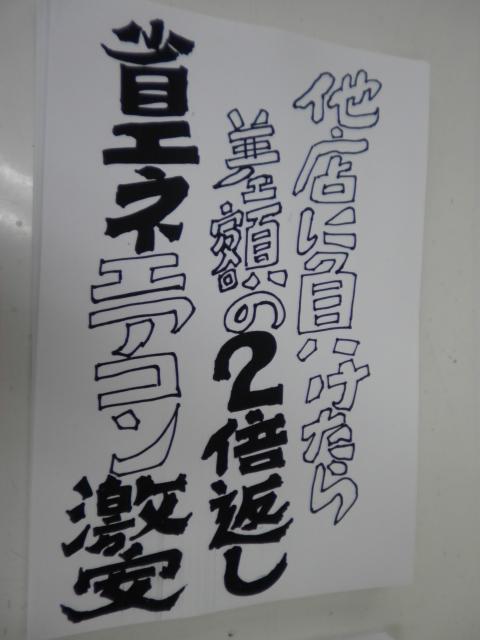 他店に負けたら
差額の2倍返し
省エネエアコン激安